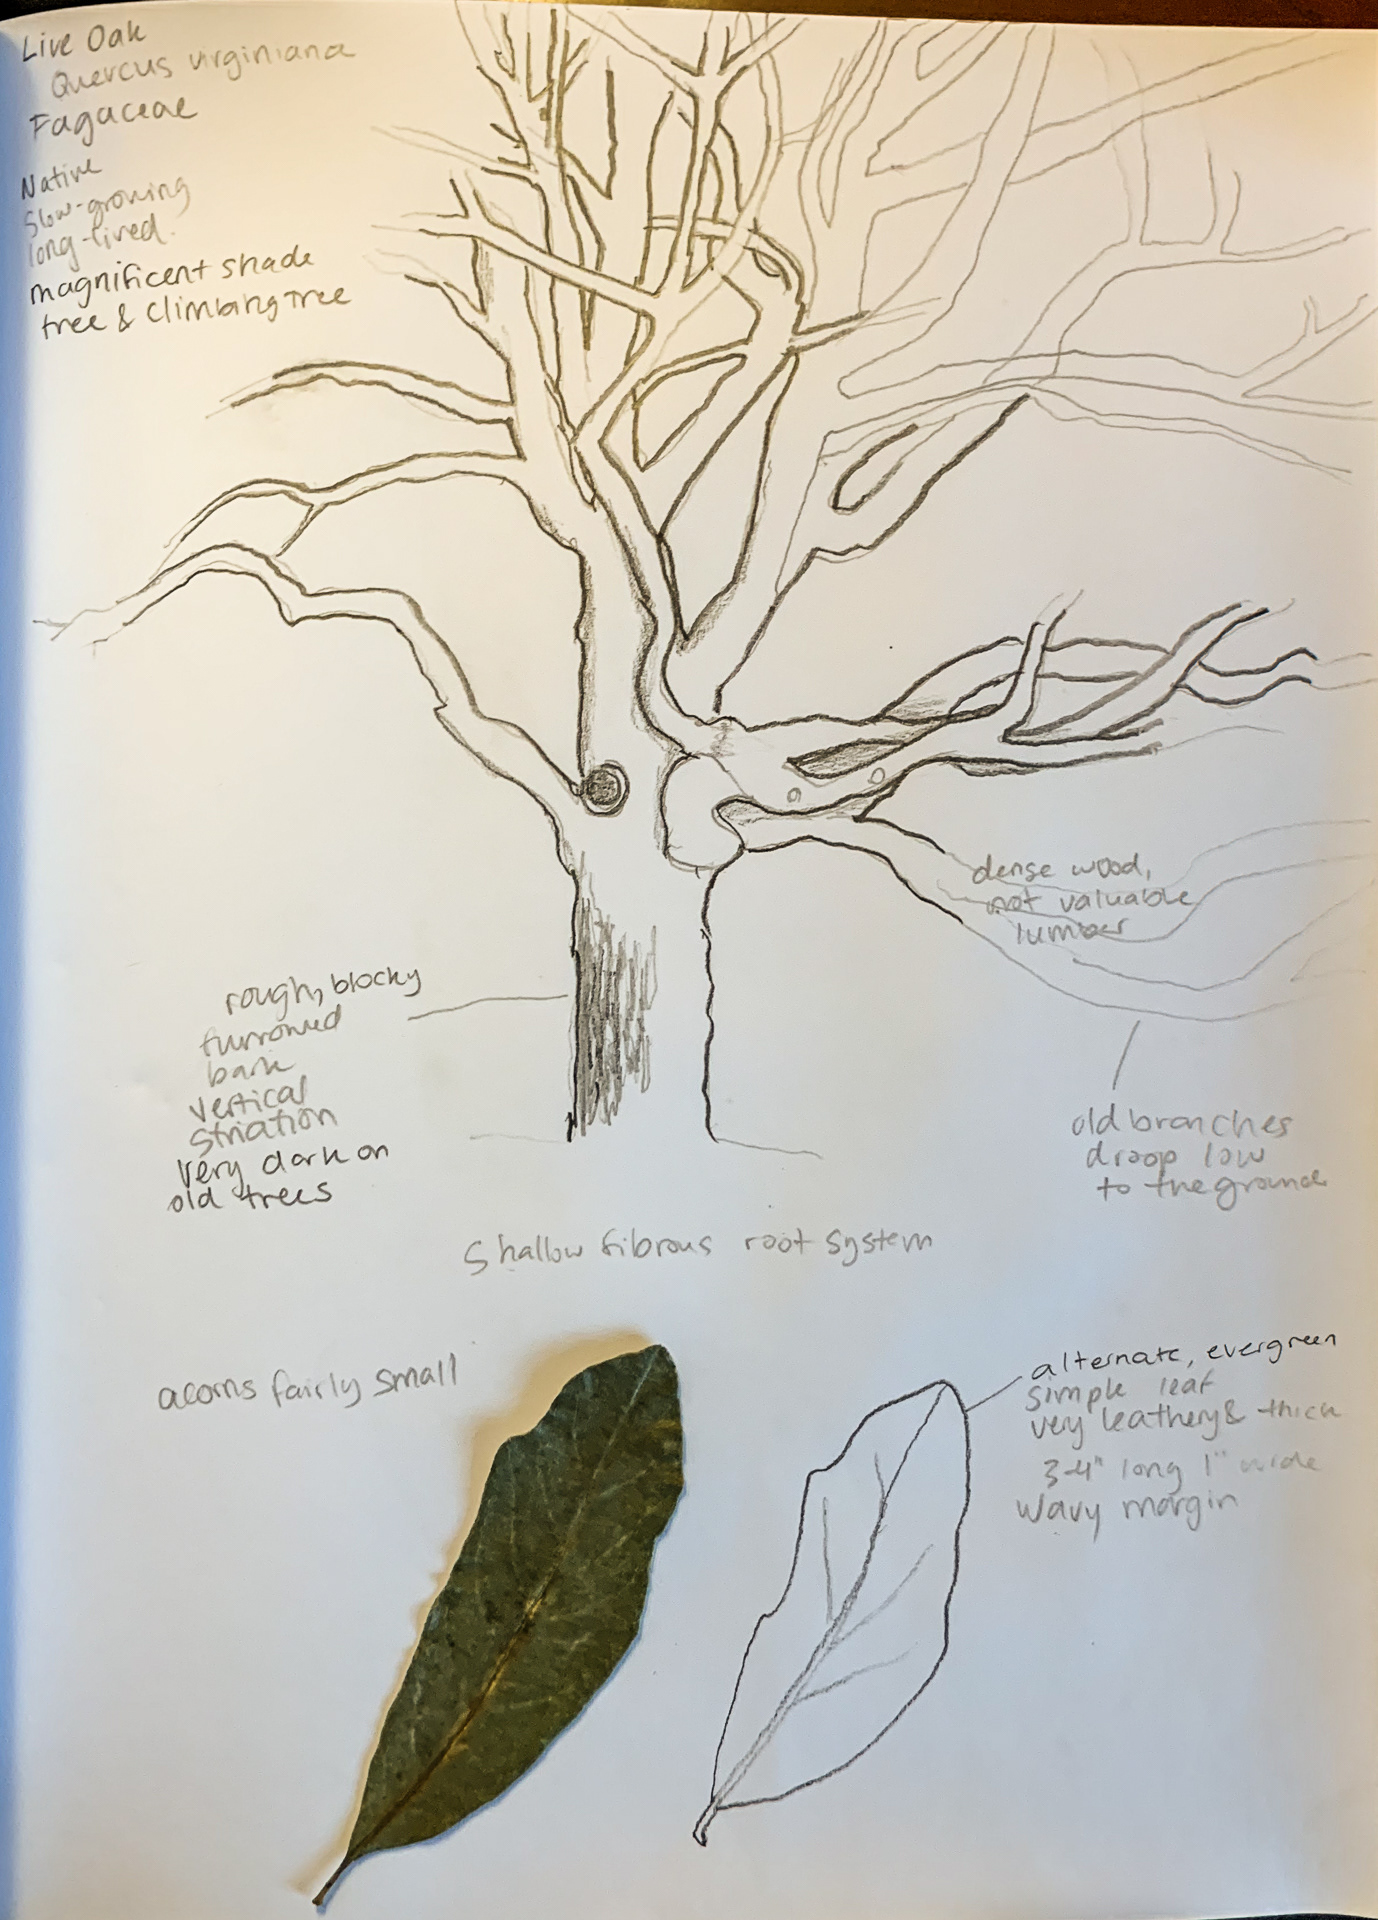 Live Oak
Quercus virginiana
Fagaceae
Native
Slow-growing
long-lived.
magnificent shade
tree & climbing tree
dense wood,
not valuable
lumber
rough, blocky
furrowed
bark
vertical
striation
very dark on
old trees
old branches
droop low
to the ground
Shallow fibrous root system
acorns fairly small
alternate, evergreen
simple leaf
very leathery & thick
3-4" long 1" wide
Wavy margin